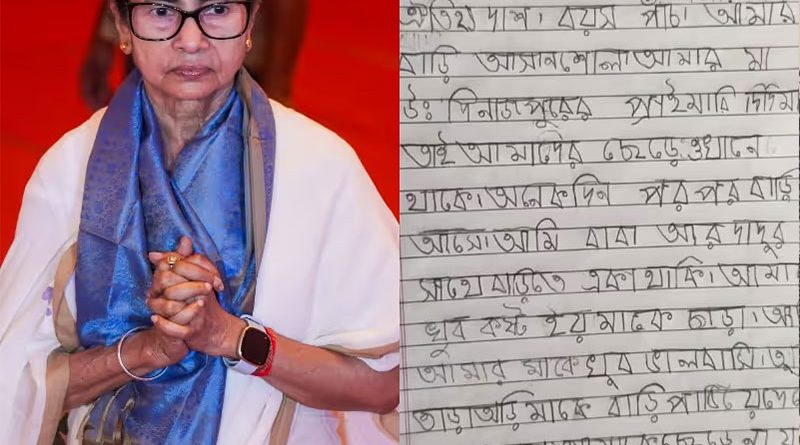 ঐতিহ্য দাশ। বয়স পাঁচ। আমার
বাড়ি আসানশোল। আমার মা
উঃ দিনাজপুরের প্রাইমারি দিদিমা
তাই আমাদের ছেড়ে ওখানে
থাকে। অনেকদিন পর পর বাড়ি
আসে। আমি বাবা আর দাদুর
সাথে বাড়িতে একা থাকি। আমা
খুব কষ্ট হয় মাকে ছাড়া।
আমার মাকে খুব ভালবাসি।
তাড়াতাড়ি মাকে বাড়ি